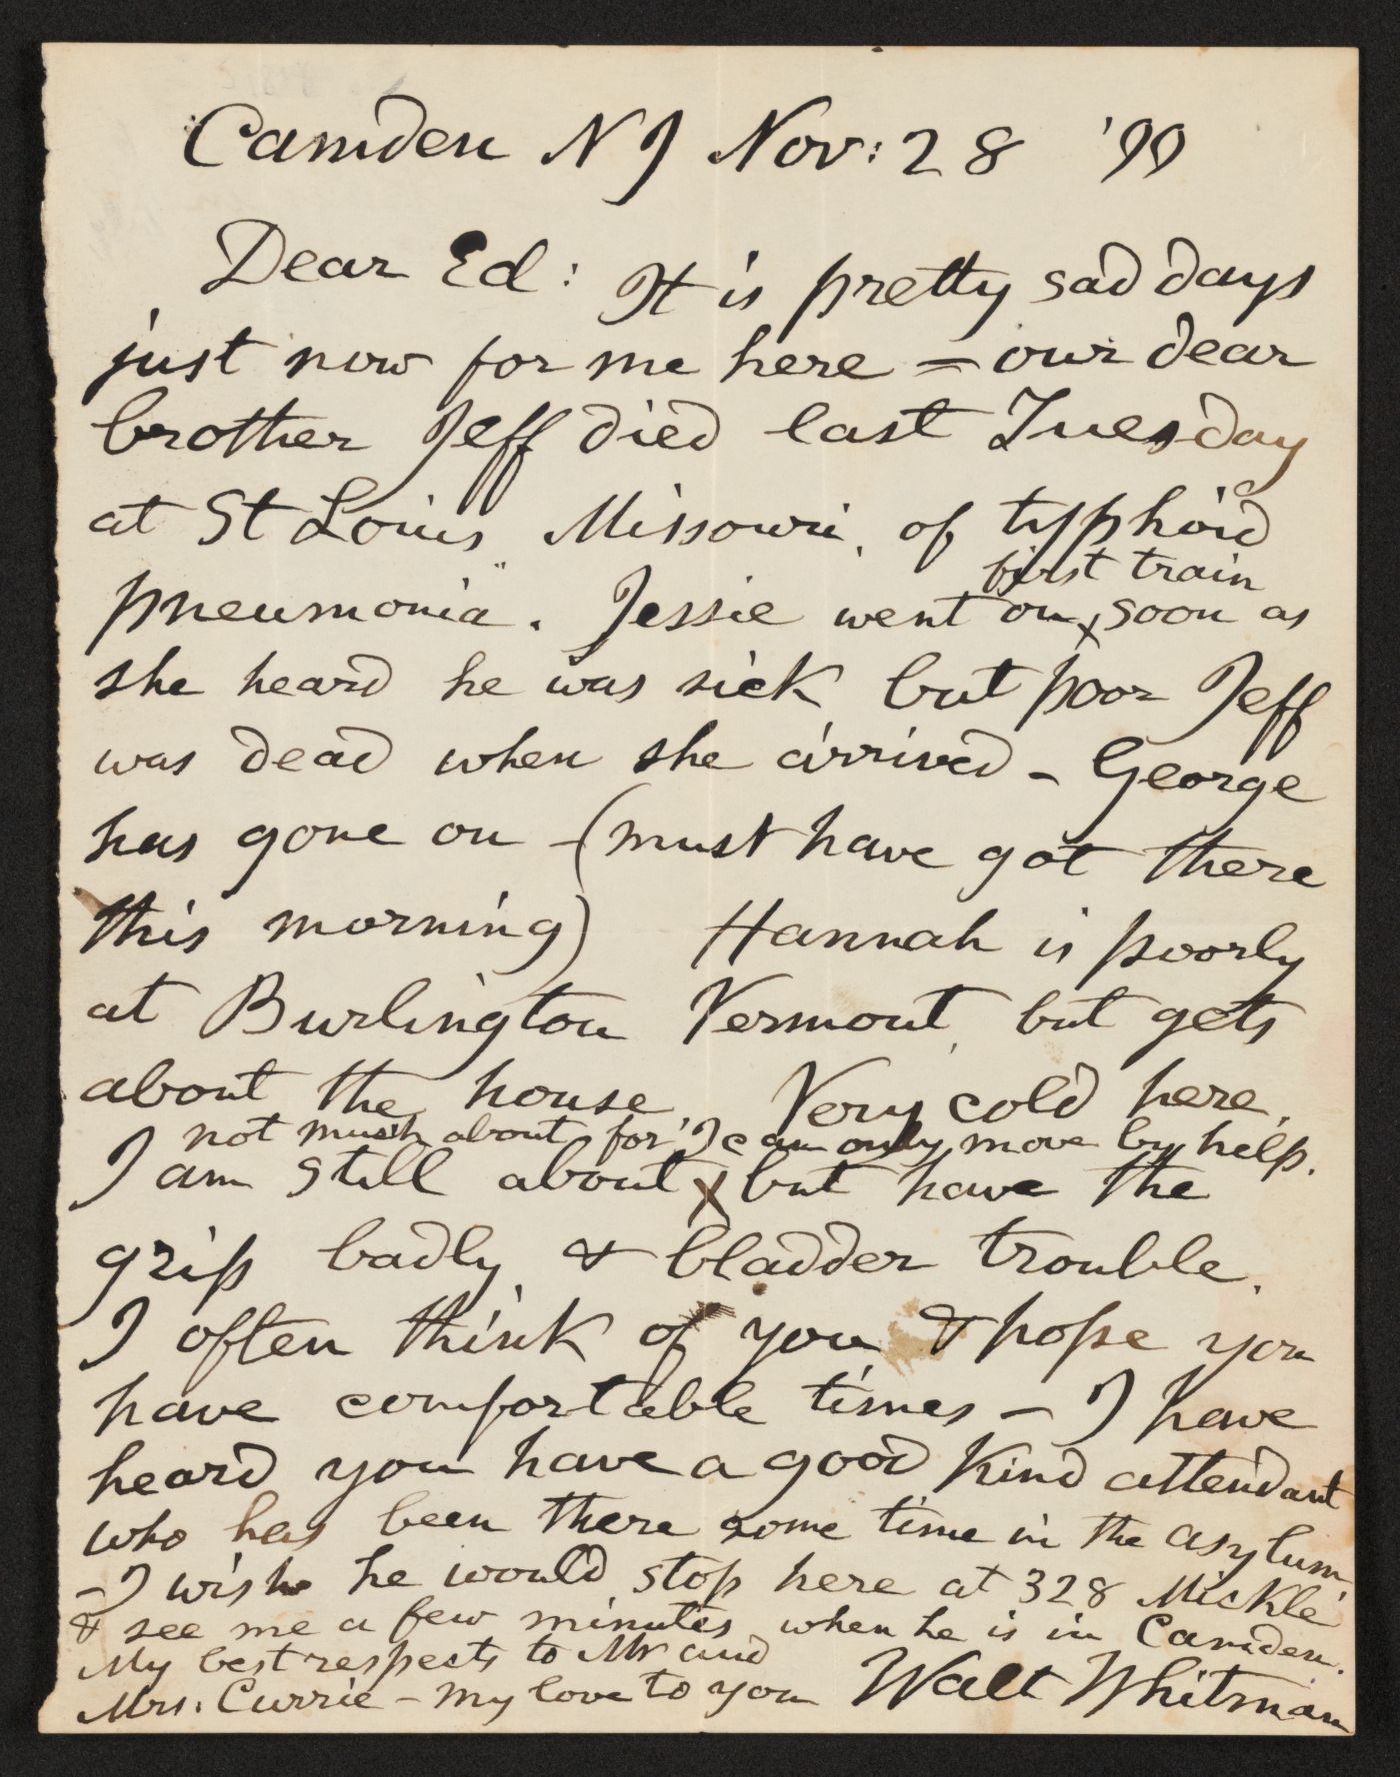 Camden N J Nov: 28 '90
Dear Ed: It is pretty sad days
just now for me here – our dear
brother Jeff died last Tuesday
at St Louis Missouri, of typhoid
pneumonia". Jessie went on first train soon as
she heard he was sick but poor Jeff
was dead when she arrived – George
has gone on – (must have got there
this morning) Hannah is poorly
at Burlington Vermont, but gets
about the house. Very cold here.
I am still about not much about for I can only move by help. but have the
grip badly, & bladder trouble.
I often think of you & hope you
have comfortable times – I have
heard you have a good kind attendant
who has been there some time in the asylum,
– I wish he would stop here at 328 Mickle
& see me a few minutes when he is in Camden.
My best respects to Mr and
Mrs: Currie – my love to you Walt Whitman